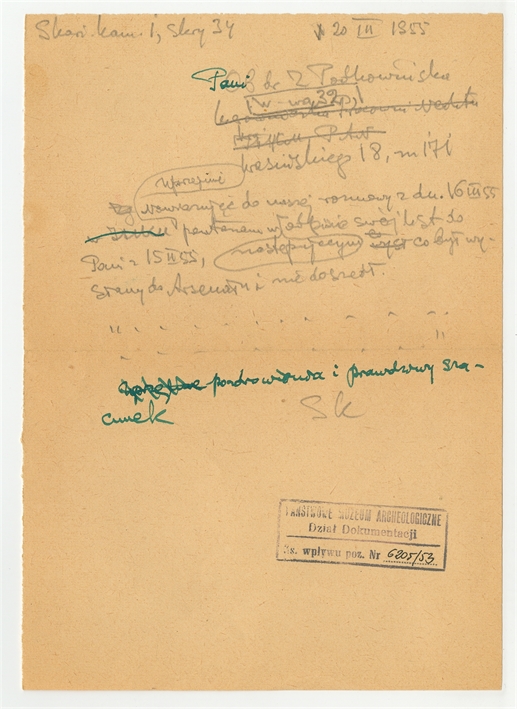 Skar.-Kam. 1, skry 34
20 III 1955
Pani
dr Z Podkowińska
(W-wa 32 p.)
Krasińskiego 18, m 171
uprzejmie
Nawiązując do naszej rozmowy z dn. 16 III 55
powtarzam w                swój list do
Pani z 15 II 55, następującym co był wy-
słany do Arsenału i nie doszedł.
" - - - - - - -
- - - - - - - "
pozdrowienia i prawdziwy sza-
cunek
SK
PAŃSTWOWE MUZEUM ARCHEOLOGICZNE
Dział Dokumentacji
Ks. wpływu poz. Nr 6205/53